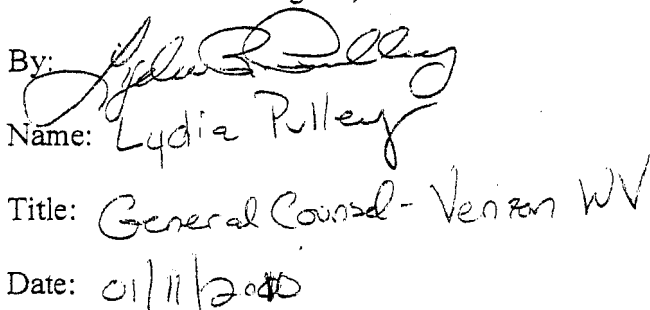 By: Lydia R Pulley
Name: Lydia Pulley
Title: General Counsel - Verizon WV
Date: 01/11/2010